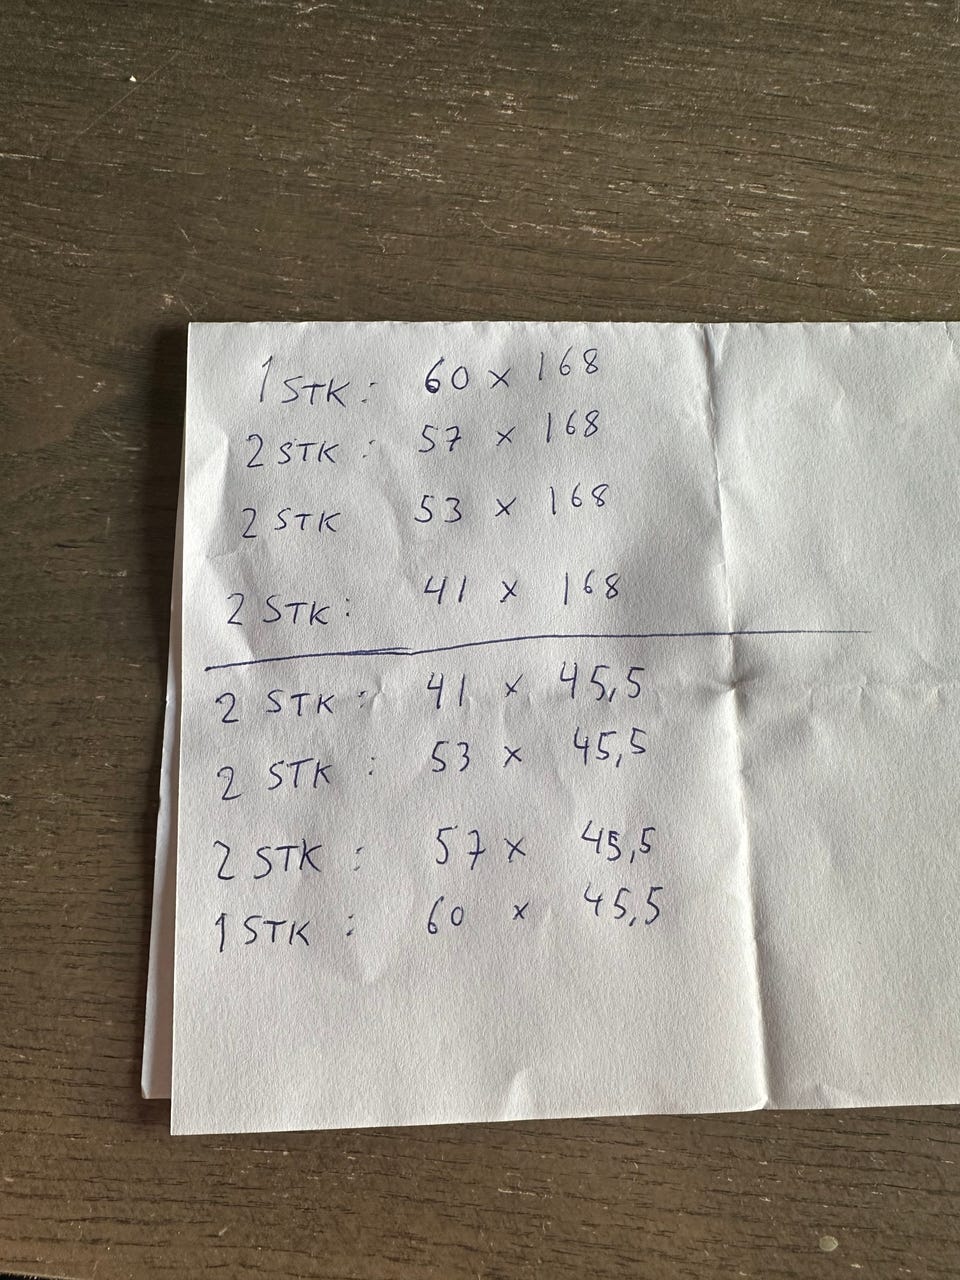 1 STK: 60 x 168
2 STK: 57 x 168
2 STK 53 x 168
2 STK: 41 x 168
2 STK: 41 x 45,5
2 STK: 53 x 45,5
2 STK: 57 x 45,5
1 STK: 60 x 45,5